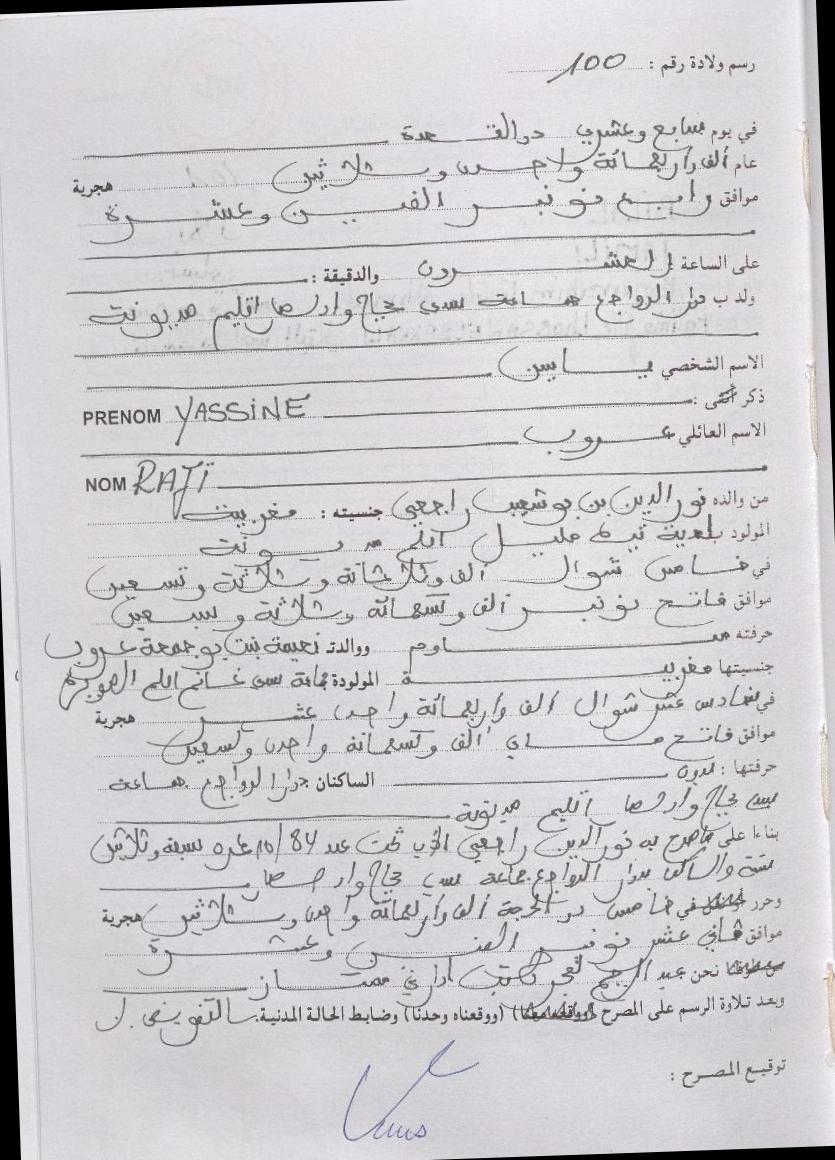 رسم ولادة رقم : 100
في يوم سابع وعشري ذوالقعدة
عام ألف وأربعمائة واحدى وثلاثين هجرية
موافق رابع نونبر الفين وعشرة
على الساعة العشرون والدقيقة :
ولد ب دوار الرواجع جماعة سيدي حجاج واد حصار اقليم مديونة
الاسم الشخصي ياسين
ذكر أنثى :
PRENOM YASSINE
الاسم العائلي
NOM RAJI
من والده نور الدين بن بوشعيب راجعي جنسيته : مغربية
المولود ب اقليم مديونة
في خامس شوال ألف وثلاثمائة وثلاثة وتسعين
موافق فاتح نونبر ألف وتسعمائة وثلاثة وسبعين
حرفته مساوم ووالدته نعيمة بنت بوجمعة
جنسيتها مغربية المولودة جماعة سيدي غانم اقليم الصويرة
في سادس عشر شوال ألف وأربعمائة واحدى عشر هجرية
موافق فاتح ماي ألف وتسعمائة واحدى وتسعين
حرفتها : بدون الساكنان دوار الرواجع جماعة
سيدي حجاج واد حصار اقليم مديونة
بناءا على ماصرح به نور الدين راجعي الأب تحت عدد 10/84 عمره سبعة وثلاثين
سنة والساكن بدوار الرواجع جماعة سيدي حجاج واد حصار
وحرر في خامس ذو الحجة ألف وأربعمائة واحدى وثلاثين هجرية
موافق ثاني عشر نونبر الفين وعشرة
نحن عبد الرحيم كاتب اداري ممتاز
وبعد تلاوة الرسم على المصرح (ووقعه معنا) (ووقعناه وحدنا) وضابط الحالة المدنية بالتفويض
توقيع المصرح :